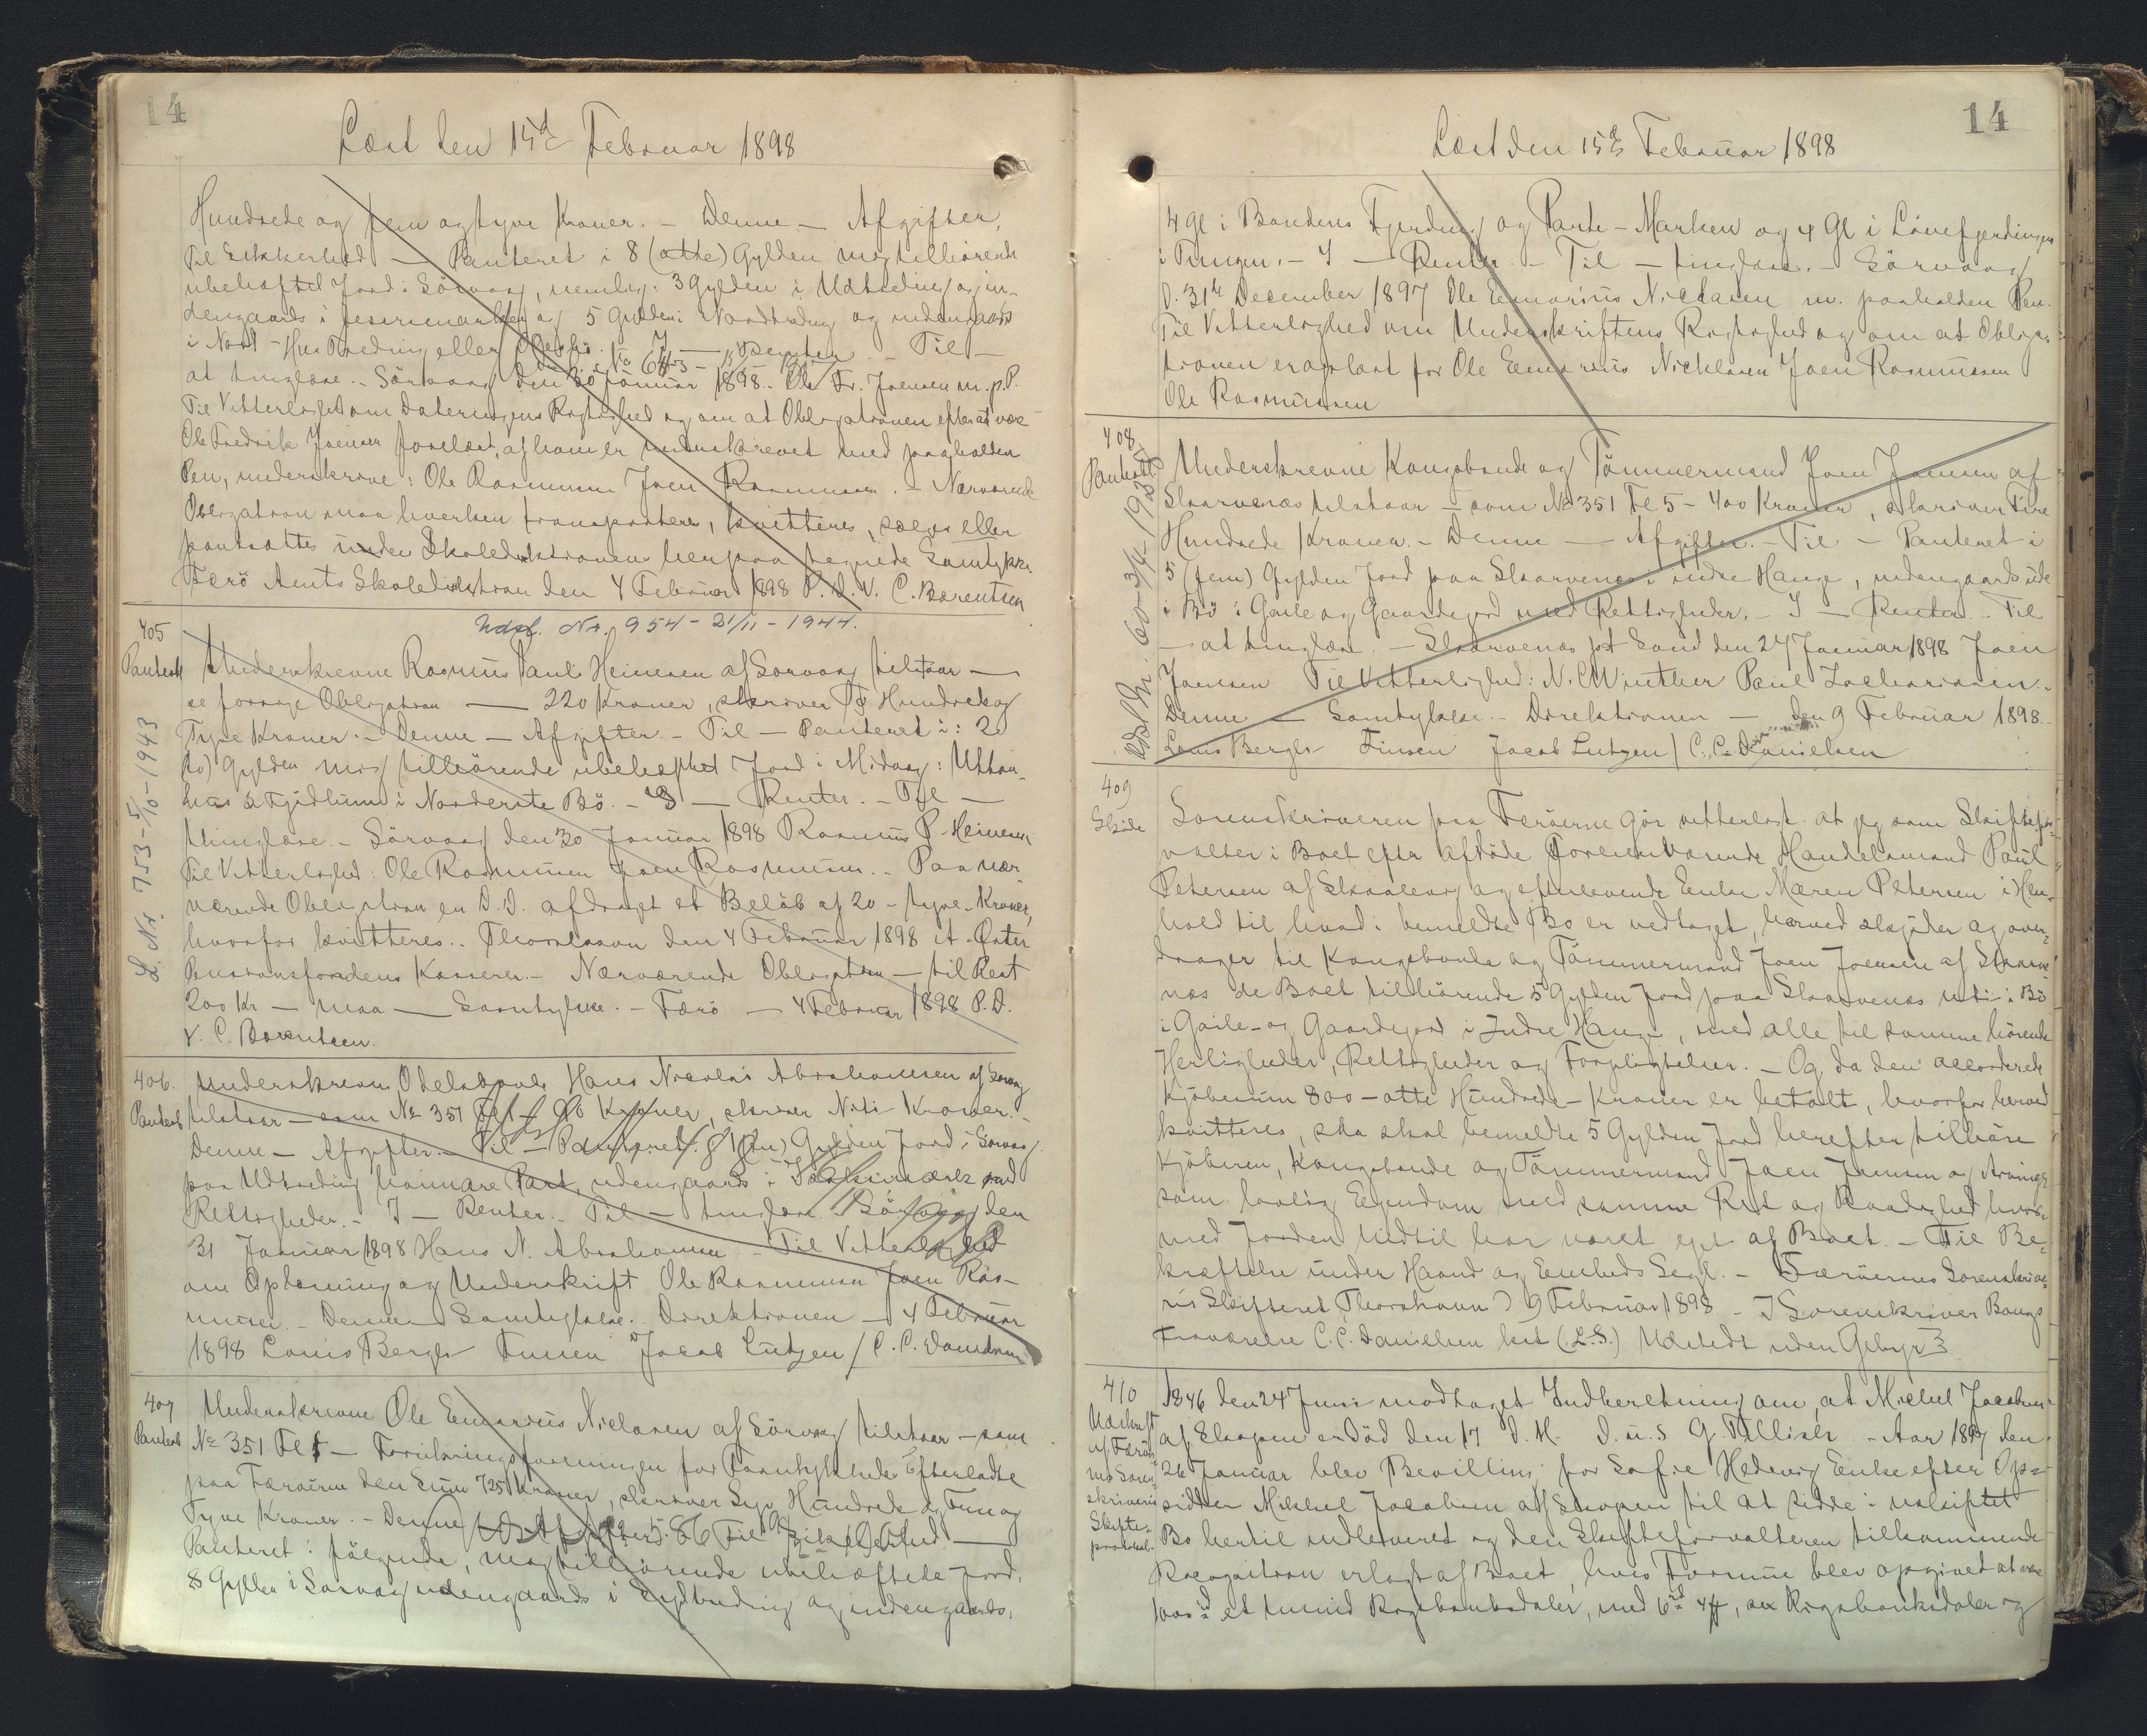 14
Læst den 15d Februar 1898
Hundrede og fem og tyve Kroner. - Denne - Afgifter,
Til Sikkerhed - Panteret i 8 (otte) Gylden mig tilhörende
ubehæftet Jord i Sörvaag, nemlig: 3 Gylden i Udtræding og in-
dengaards i og 5 Gylden i Nordtræding og indengaards
i Nord - Hus Træding eller I - Renter. - Til -
No 643 -
at tinglæse. - Sörvaag den 30 Januar 1898. Ole Fr. Joensen m. p. P.
Til Vitterlighed om Dateringens Rigtighed og om at Obligationen efter at være
Ole Fredrik Joensen forelæst, af ham er underskrevet med paaholden
Pen, underskrive: Ole Rasmussen Joen Rasmussen. - Nærværende
Obligation maa hverken transporteres, kvitteres, sælges eller
pantsættes uden Skoledirektionens herpaa tegnede Samtykke.
Færö Amts Skoledirektion den 4 Februar 1898 P. D. V. C. Barentsen
Udsl. Nr. 954 - 21/11 - 1944.
405
Panteobl
L. Nr. 753 - 5/10 - 1943
Underskrevne Rasmus Pauli Heinesen af Sörvaag tilstaar -
se forrige Obligation - 220 Kroner, skriver To Hundrede og
Tyve Kroner. - Denne - Afgifter. - Til - Panteret i: 2
to) Gylden mig tilhörende ubehæftet Jord i Midvaag:
i Norderste Bö. - I - Renter. - Til -
tinglæse. - Sörvaag den 30 Januar 1898 Rasmus P. Heinesen
Til Vitterlighed: Ole Rasmussen Joen Rasmussen. - Paa nær-
værende Obligation er D. D. afdraget et Belöb af 20 - tyve - Kroner,
hvorfor kvitteres. - Thorshavn den 4 Februar 1898 A.
Kasserer. - Nærværende Obligation - til Rest
200 Kr - maa - Samtykke. - Færö - 4 Februar 1898 P. D.
V. C. Barentsen.
406.
Panteobl
Underskrevne Odelsbonde Hans Nicolai Abrahamsen af Sörvaag
tilstaar - som No 351 Kroner, skriver Niti Kroner. -
Denne - Afgifter. - Til - Panteret Gylden Jord i Sörvaag
paa Udtræding Part, udengaards i med
Rettigheder. - I - Renter. - Til - tinglæse. den
31 Januar 1898 Hans N. Abrahamsen - Til Vitterlighed
om Oplæsning og Underskrift Ole Rasmussen Joen Ras-
mussen. - Denne Samtykke. Direktionen - 4 Februar
1898 Louis Bergh Finsen Jacob Lützen / C. C. Danielsen
407
Panteobl
Underskrevne Ole Emarius Niclasen af Sörvaag tilstaar - som
No 351 Fl 1 - Forsikringsforeningen for Efterladte
paa Færöerne den Sum 725 Kroner, skriver Syv Hundrede og Fem og
Tyve Kroner. - Denne Til
Panteret i fölgende, mig tilhörende ubehæftede Jord,
8 Gylden i Sörvaag udengaards i og indengaards,
14
Læst den 15de Februar 1898
4 Gl i Bondens Fjerding og Marken og 4 Gl i
i Tungen. - I - Renter. - Til - tinglæse. - Sörvaag
D. 31te December 1897 Ole Emarius Niclasen m. paaholden Pen.
Til Vitterlighed om Underskriftens Rigtighed og om at Obliga-
tionen er oplæst for Ole Emarius Nicklasen Joen Rasmussen
Ole Rasmussen
408
Panteobl
Udsl. Nr. 60 - 3/4 -
Underskrevne Kongsbonde og Tömmermand Joen Joensen af
Skarvenæs tilstaar - som No 351 Fl 5 - 400 Kroner, skriver Fire
Hundrede Kroner. - Denne - Afgifter. - Til - Panteret i
5 (fem) Gylden Jord paa Skarvenæs i indre Hauge, udengaards ude
i Bö i Gaile og Gaardegjord med Rettigheder. - I - Renter. Til
- at tinglæse. - Skarvenæs pt Sand den 27 Januar 1898 Joen
Joensen Til Vitterlighed: N. C. Winther Paul Zachariasen. -
Denne - Samtykke. - Direktionen - den 9 Februar 1898. -
Louis Bergh Finsen Jacob Lützen / C. C. Danielsen
409
Sköde
Sorenskriveren paa Færöerne gör vitterligt at jeg som Skiftefor-
valter i Boet efter afdöde forhenværende Handelsmand Paul
Petersen af Skaalevig og efterlevende Enke Maren Petersen i Hen-
hold til hvad i bemeldte Bo er vedtaget, herved skjöder og over-
drager til Kongsbonde og Tömmermand Joen Joensen af Skarve-
næs de Boet tilhörende 5 Gylden Jord paa Skarvenæs uti i Bö
i Gaile- og Gaardegjord i Indre Hauge, med alle til samme hörende
Herligheder, Rettigheder og Forpligtelser. - Og da den accorderede
Kjöbesum 800 - otte Hundrede - Kroner er betalt, hvorfor herved
kvitteres, saa skal bemeldte 5 Gylden Jord herefter tilhöre
Kjöberen, Kongsbonde og Tömmermand Joen Joensen og Arvinger
som lovlig Eiendom med samme Ret og Raadighed hvor-
med Jorden hidtil har været ejet af Boet. - Til Be-
kræftelse under Haand og Embeds Segl. - Færöernes Sorenskrive-
ris Skifteret, Thorshavn D 9 Februar 1898 - I Sorenskriver Bangs
Fraværelse C. C. Danielsen kst (L. S.) Udstedt uden Gebyr
410
Udskrift
af Færöer-
nes Soren-
skriveris
Skifte-
protokol.
1846 den 24 Juni modtaget Indberetning om, at Mikkel Jacobsen
af Skopen er död den 17 D. M. D. u. s G. Tillisch - Aar 1847 den
26 Januar blev Bevilling for Sofie Hedevig Enke efter Op-
sidder Mikkel Jacobsen af Skopen til at sidde i uskiftet
Bo hertil indleveret og den Skifteforvalteren tilkommende
Recognition erlagt af Boet, hvis Formue blev opgivet at være
1000 rd et tusind Rigsbankdaler, med 6 rd 4 ß, sex Rigsbankdaler og